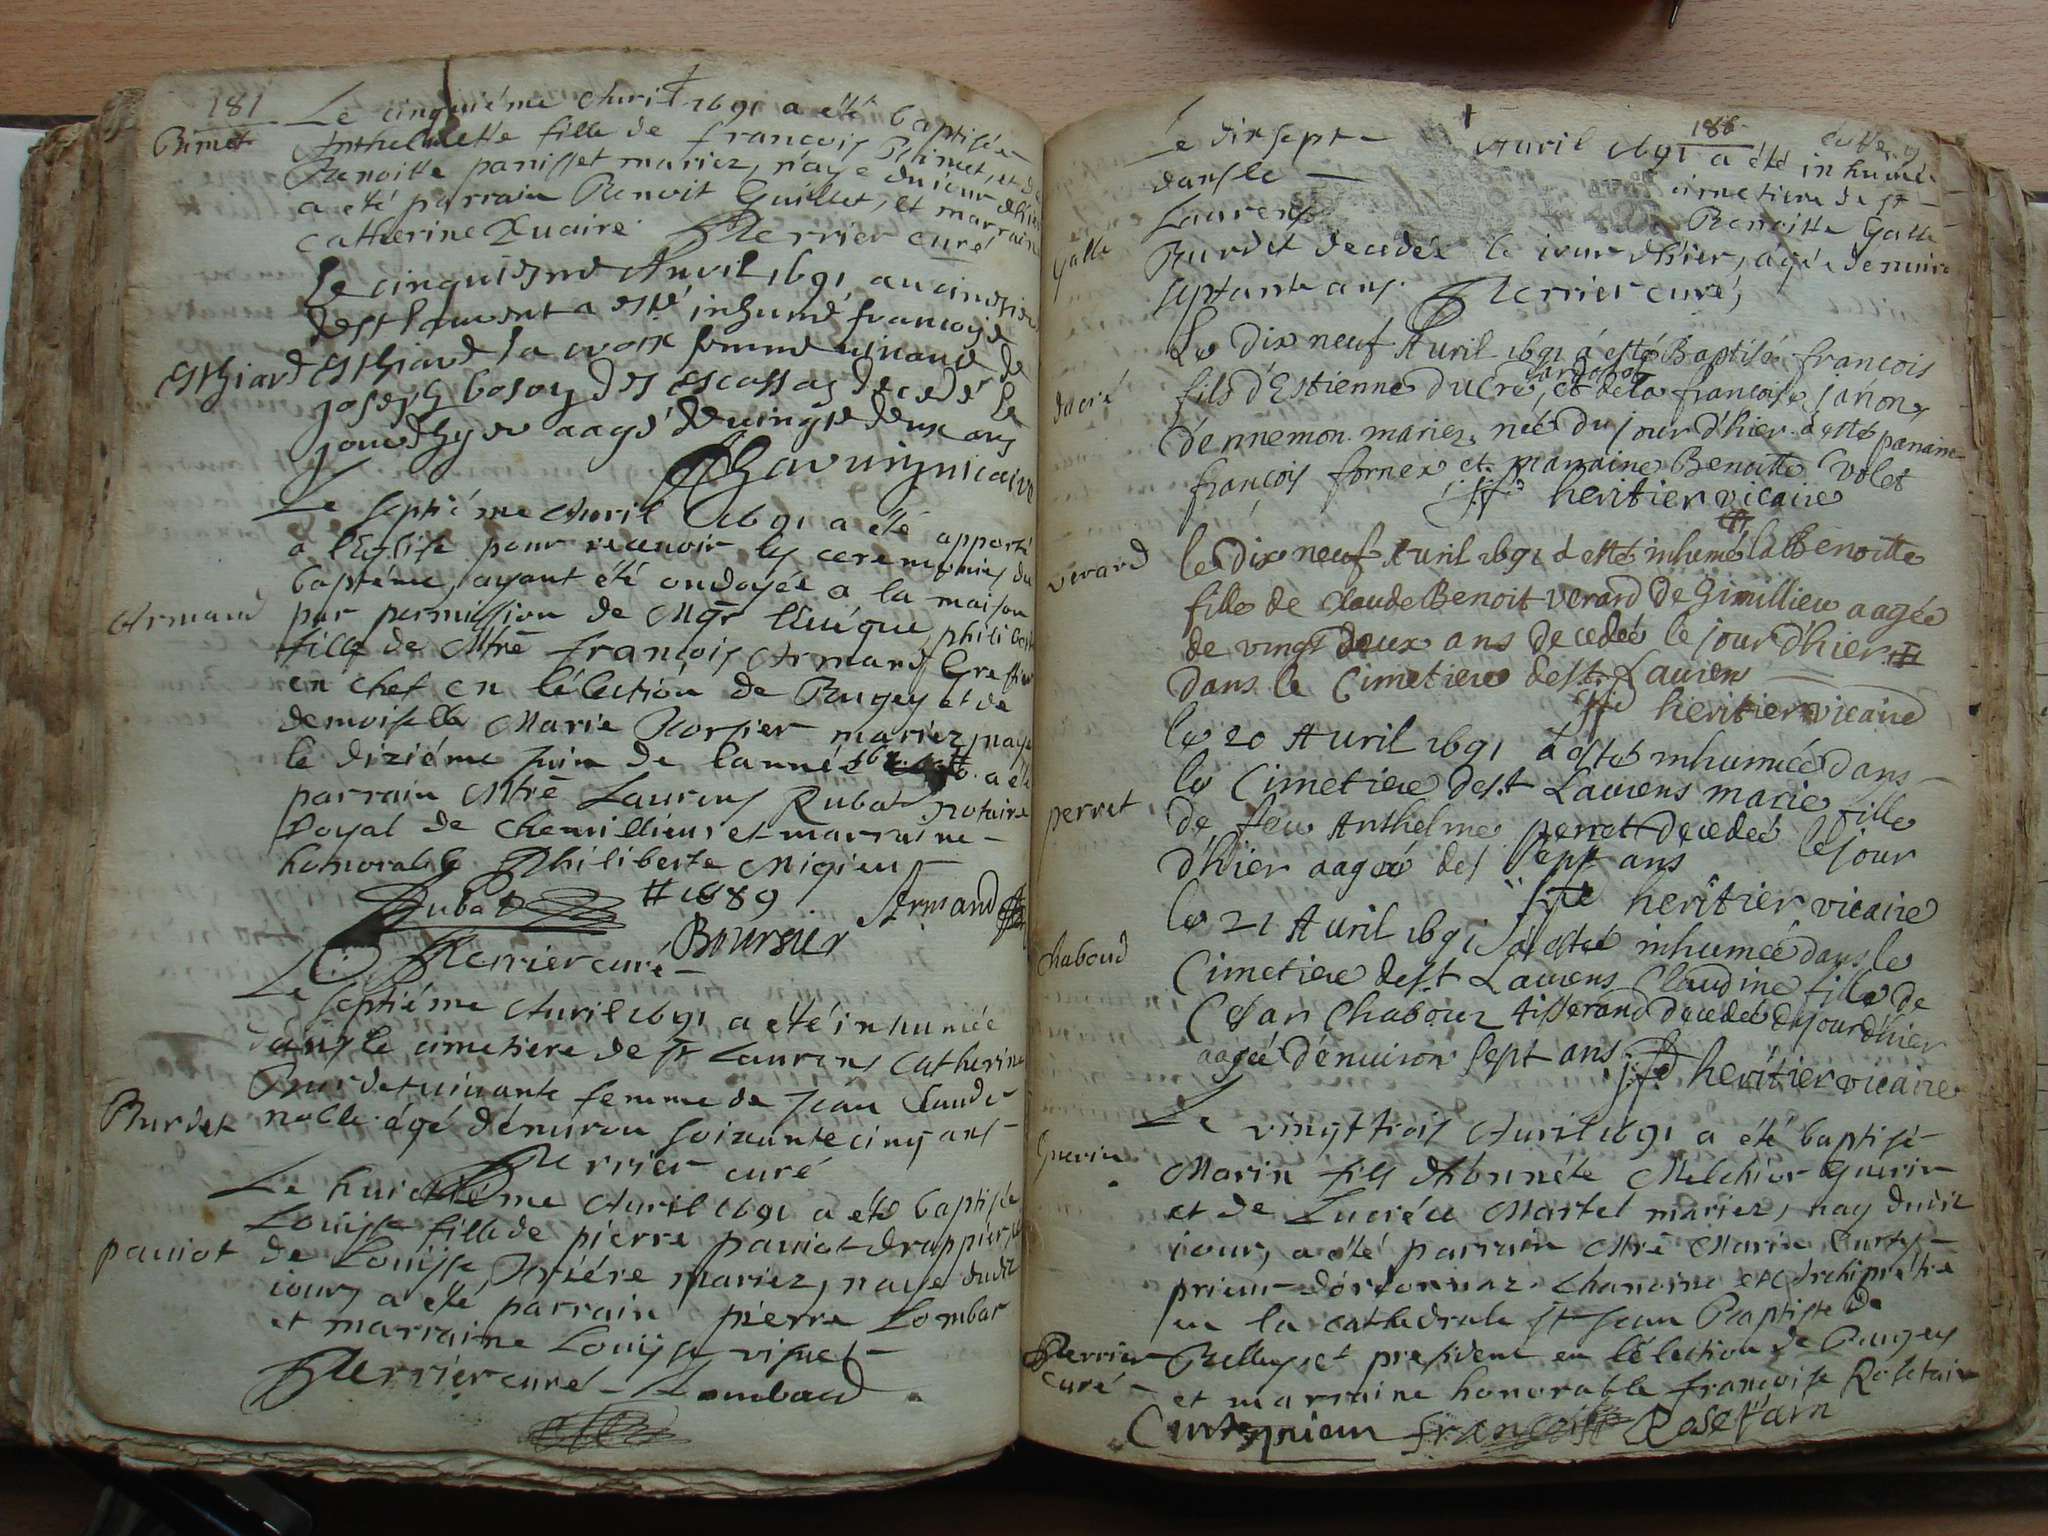 181
Bimet
Le cinquiéme Auril 1691 a été baptisée
Anthelmette fille de francois Bimet, et de
Benoitte panisset mariez, naye du iour d'hier
a été parrain Benoit Guillet, et marraine
Catherine Perrier curé
Le cinquiesme Auvril 1691 au cimetiere
de st laurent a esté inhumé francoise
Esthiard
Esthiard la croix femme de
joseph bosoy des escassas decedé le
jour d'hyer aagé de vingt deux ans
vicaire
Le septiéme Auril 1691 a été apporté
a l'Eglise pour receuoir les ceremonies du
baptéme, ayant été ondoyée a la maison
Armand
par permission de Mgr l'Euéque, philiberte
fille de Mtre françois Armand Greffier
en chef en l'élection de Bugey et de
demoiselle Marie mariez, naye
le diziéme juin de l'année a été
parrain Mtre Laurens Rubat notaire
Royal de Cheuillieu, et marraine
honorable Philiberte Migieu
Rubat # 1689 Armand
Boursier
Perrier curé
Le septiéme Auril 1691 a été inhumée
dans le cimetiere de st Laurens Catherine
Burdet uiuante femme de Jean Claude
Burdet
nolle égé d'enuiron soixante cinq ans
Perrier curé
Le huictiéme Auril 1691 a été baptisée
Louise fille de pierre pauiot drappier, et
pauiot
de Louise mariez, naye dudit
iour, a été parrain pierre Lombar
et marraine Louise
Perrier curé Lombard
186
Le dixsept Auril 1691 a été inhumée
dans le cimetiere de st
Laurens Benoitte Galle
Galle
Burdet decedée le iour d'hier, agée d'enuiron
septante ans. Perrier curé,
Le Dix neuf Auril 1691 à esté Baptisé francois
ducré
fils d'Estienne Ducré, et de la francoise janon
d'ennemon mariez, néé du jour d'hier à esté parrain
françois fornex et marraine Benoitte Volet
heritier vicaire
verard
le Dix neuf Auril 1691 à esté inhumé la Benoitte
fille de Claude Benoit Verard De Gimillieu aagée
de vingt deux ans decedeé le jour d'hier #
dans le Cimetiere de st. Laurens
heritier vicaire
le 20 Auril 1691 à esté inhumeé dans
le Cimetiere de s.t Laurens marie fille
perret
de feu Anthelme perret decedeé le jour
d'hier aageé de sept ans
heritier vicaire
le 21 Auril 1691 à esté inhumée dans le
Chaboud
Cimetiere de s.t Laurens Claudine fille de
Cesar Chabouz tisserand decedeé le jour d'hier
aageé d'enuiron sept ans heritier vicaire
Le vingttrois Auril 1691 a été baptisé
Guerin
Marin fils d'honnéte Melchior Guerin
et de Lucréce Martel mariez, nay dudit
iour, a été parrain Mtre Marin Curtet
prieur d'ordonnaz Chanoine et Archiprétre
en la cathedrale st Jean Baptiste de
Belley et president en l'election de Bugey
et marraine honorable françoise Rosetain
Perrier
curé
Curtet prieur françoise Rosetain